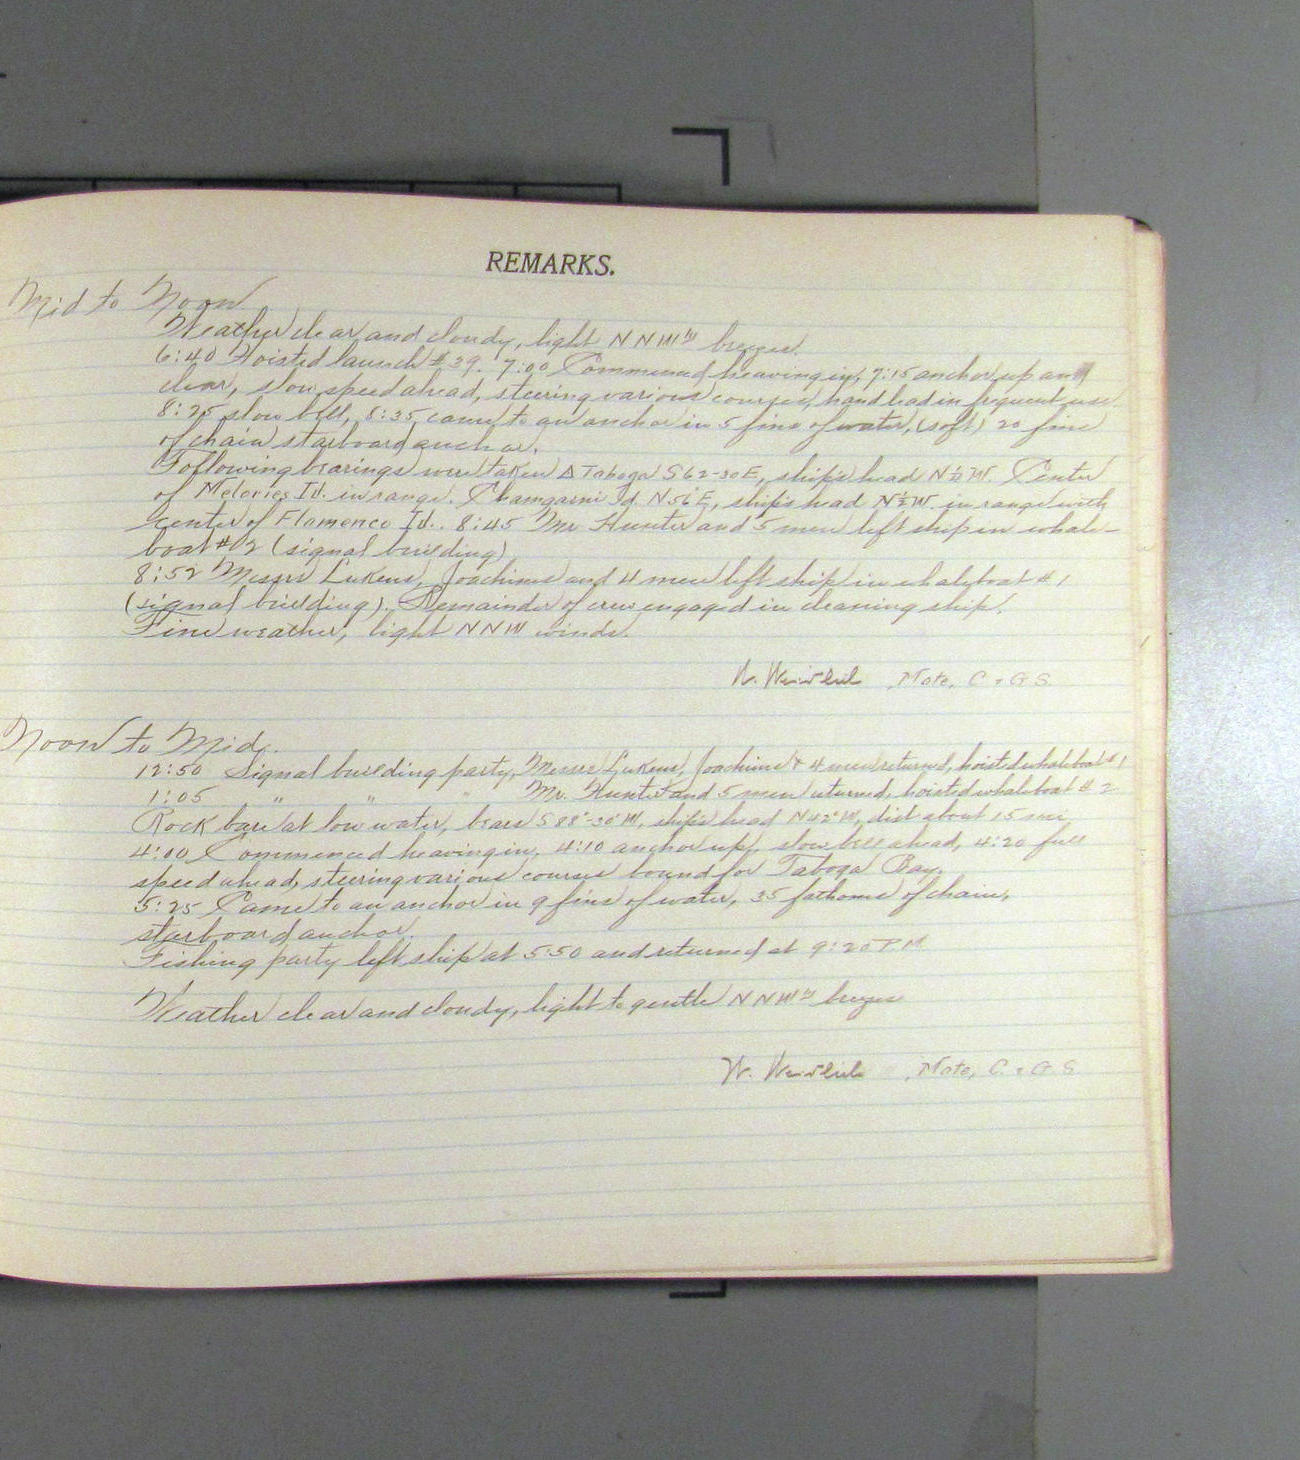 REMARKS.
Mid to Noon
Weather clear and cloudy, light NNW'ly breezes.
6:40 Hoisted launch #39. 7:00 Commenced heaving in, 7:15 anchor up and
clear, slow speed ahead, steering various courses, hand lead in frequent use.
8:25 slow bell, 8:35 came to an anchor in 5 fms of water, (soft) 20 fms
of chain starboard anchor.
Following bearings were taken △ Taboga S62-30E, ship's head N½W. Center
of Melones Id. in range. Changarni Id. N51°E, ship's head N½W. in range with
center of Flamenco Id.. 8:45 Mr. Hunter and 5 men left ship in whale-
boat #2 (signal building)
8:52 Messrs Lukens, Joachims and 4 men left ship in whaleboat #1
(signal building). Remainder of crew engaged in cleaning ship.
Fine weather, light NNW winds.
W. Mate, C & G.S.
Noon to Mid.
12:50 Signal building party, Messrs Lukens, Joachims & 4 men returned, hoisted whaleboat #1
1:05 " " " Mr. Hunter and 5 men returned, hoisted whaleboat #2
Rock bare at low water, bears S88°-30'W, ship's head N42°W, dist about 15 mi,
4:00 Commenced heaving in, 4:10 anchor up, slow bell ahead, 4:20 full
speed ahead, steering various courses bound for Taboga Bay.
5:25 Came to an anchor in 9 fms of water, 35 fathoms of chain,
starboard anchor.
Fishing party left ship at 5:50 and returned at 9:20 P.M.
Weather clear and cloudy, light to gentle NNW'ly breezes
W. Mate, C. & G.S.